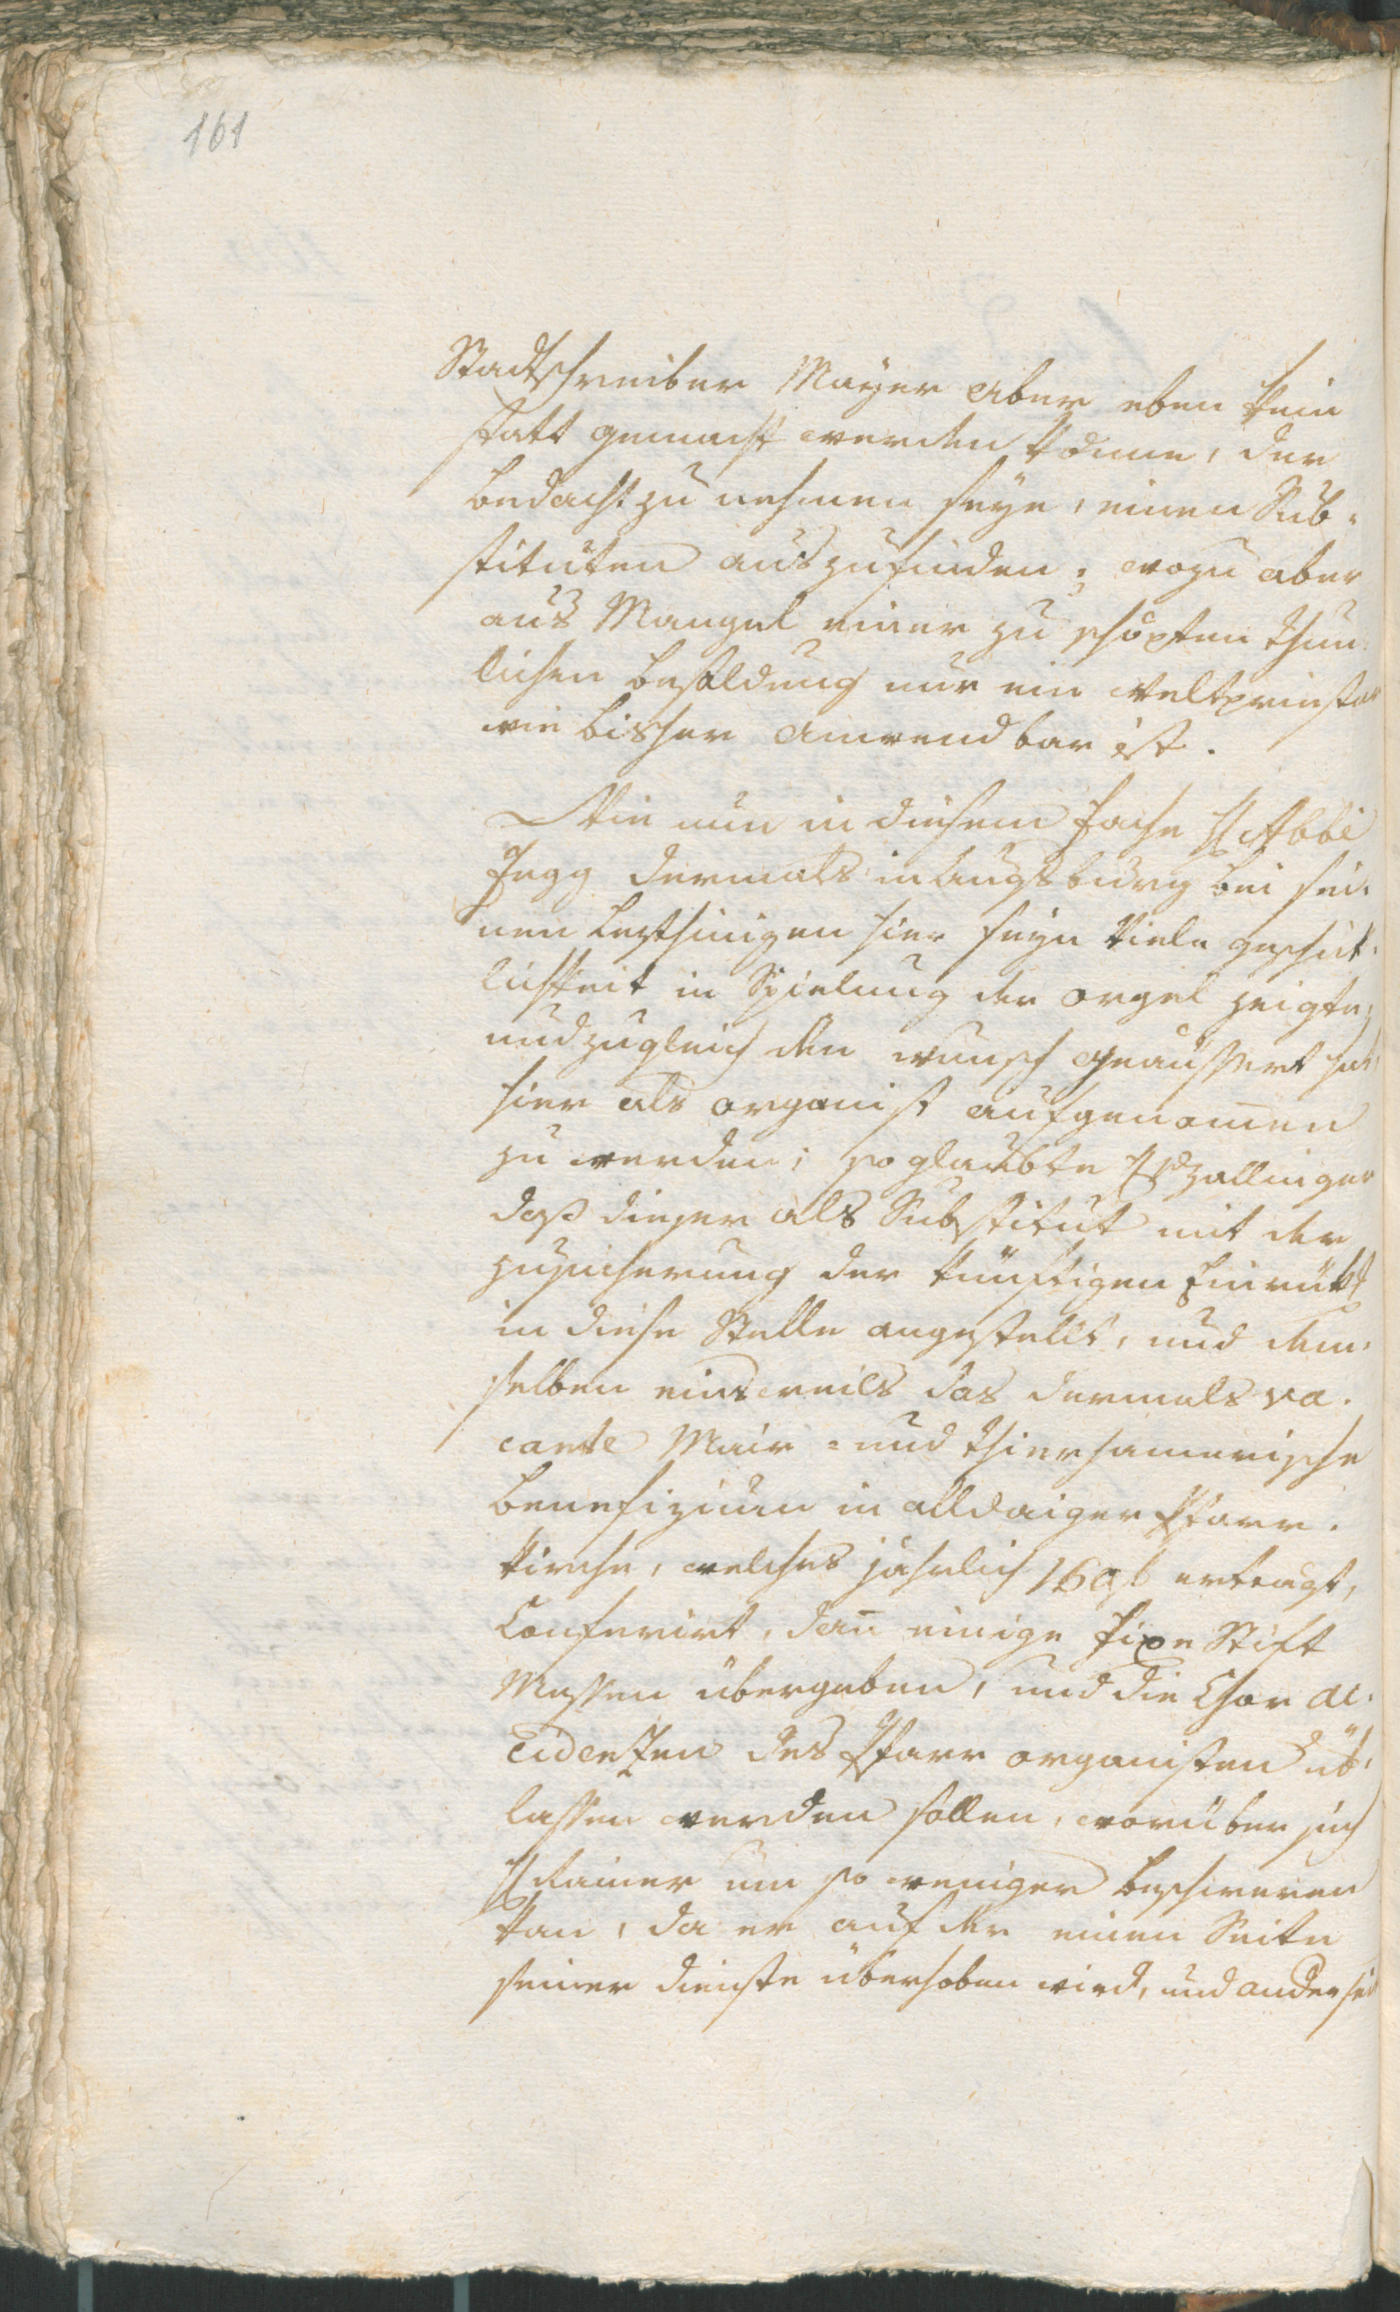 161
Stadtschreiber Mayer aber eben kein
statt gemacht werden könne, der
bedacht zu nehmen seye, einen Sub-
stituten auszufinden, wozu aber
aus Mangel einer zu schöpfen thun-
lichen besoldung nur ein Weltpriester
wie bisher anwendbar ist.
Wie nun in diesem Fache H Abbé
Jegg dermals in Augsburg bei sei-
nen lezthinigen hier seyn viele geschik-
lichkeit in Spielung der orgel zeigte,
und zugleich den wunsch geäussert hat
hier als organist aufgenomen
zu werden; so glaubte H v Zallinger
daß dieser als Substitut mit der
zusicherung der künftigen Einrükg
in diese Stelle angestellt, und dem-
selben einsweils das dermals va-
cante Mair- und thierhamerische
Benefizium in alldaiger Pfarr-
kirche, welches jährlich 169 f ertragt,
Conferirt, dan einige fixe Stift
Messen übergeben, und die Chor Ac-
cidenzen des Pfarr organisten üb-
lassen werden sollen, worüber sich
H Rainer um so weniger beschweren
kan, da er auf der einen Seite
seiner dienste überhoben wird, und anderseit